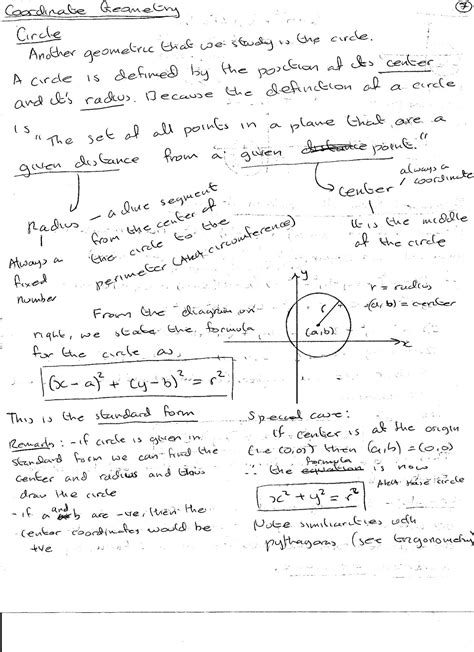 Coordinate Geometry 7
Circle
Another geometric that we study is the circle.
A circle is defined by the position of its center
and it's radius. Because the definition of a circle
is "The set of all points in a plane that are a
given distance from a given distance point."
Radius - a line segment
from the center of
the circle to the
perimeter (AKA circumference)
Always a
fixed
number
center always a
coordinate
it is the middle
of the circle
From the diagram on
right, we state the formula
for the circle as,
(x-a)² + (y-b)² = r²
y
r
(a,b)
x
r = radius
(a,b) = center
This is the standard form
Remark: - if circle is given in
standard form we can find the
center and radius and thus
draw the circle
- if a and b are -ve, then the
center coordinates would be
+ve
Special case:
If center is at the origin
(i.e (0,0)) then (a,b) = (0,0)
∴ the equation formula is now
x² + y² = r²
circle
Note similarities with
pythagoras (see trigonometry